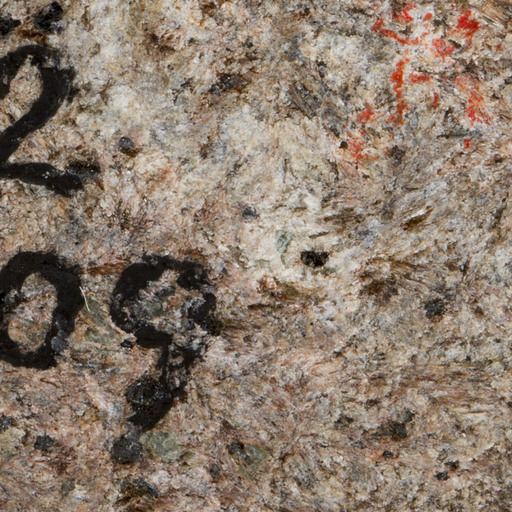 2
09